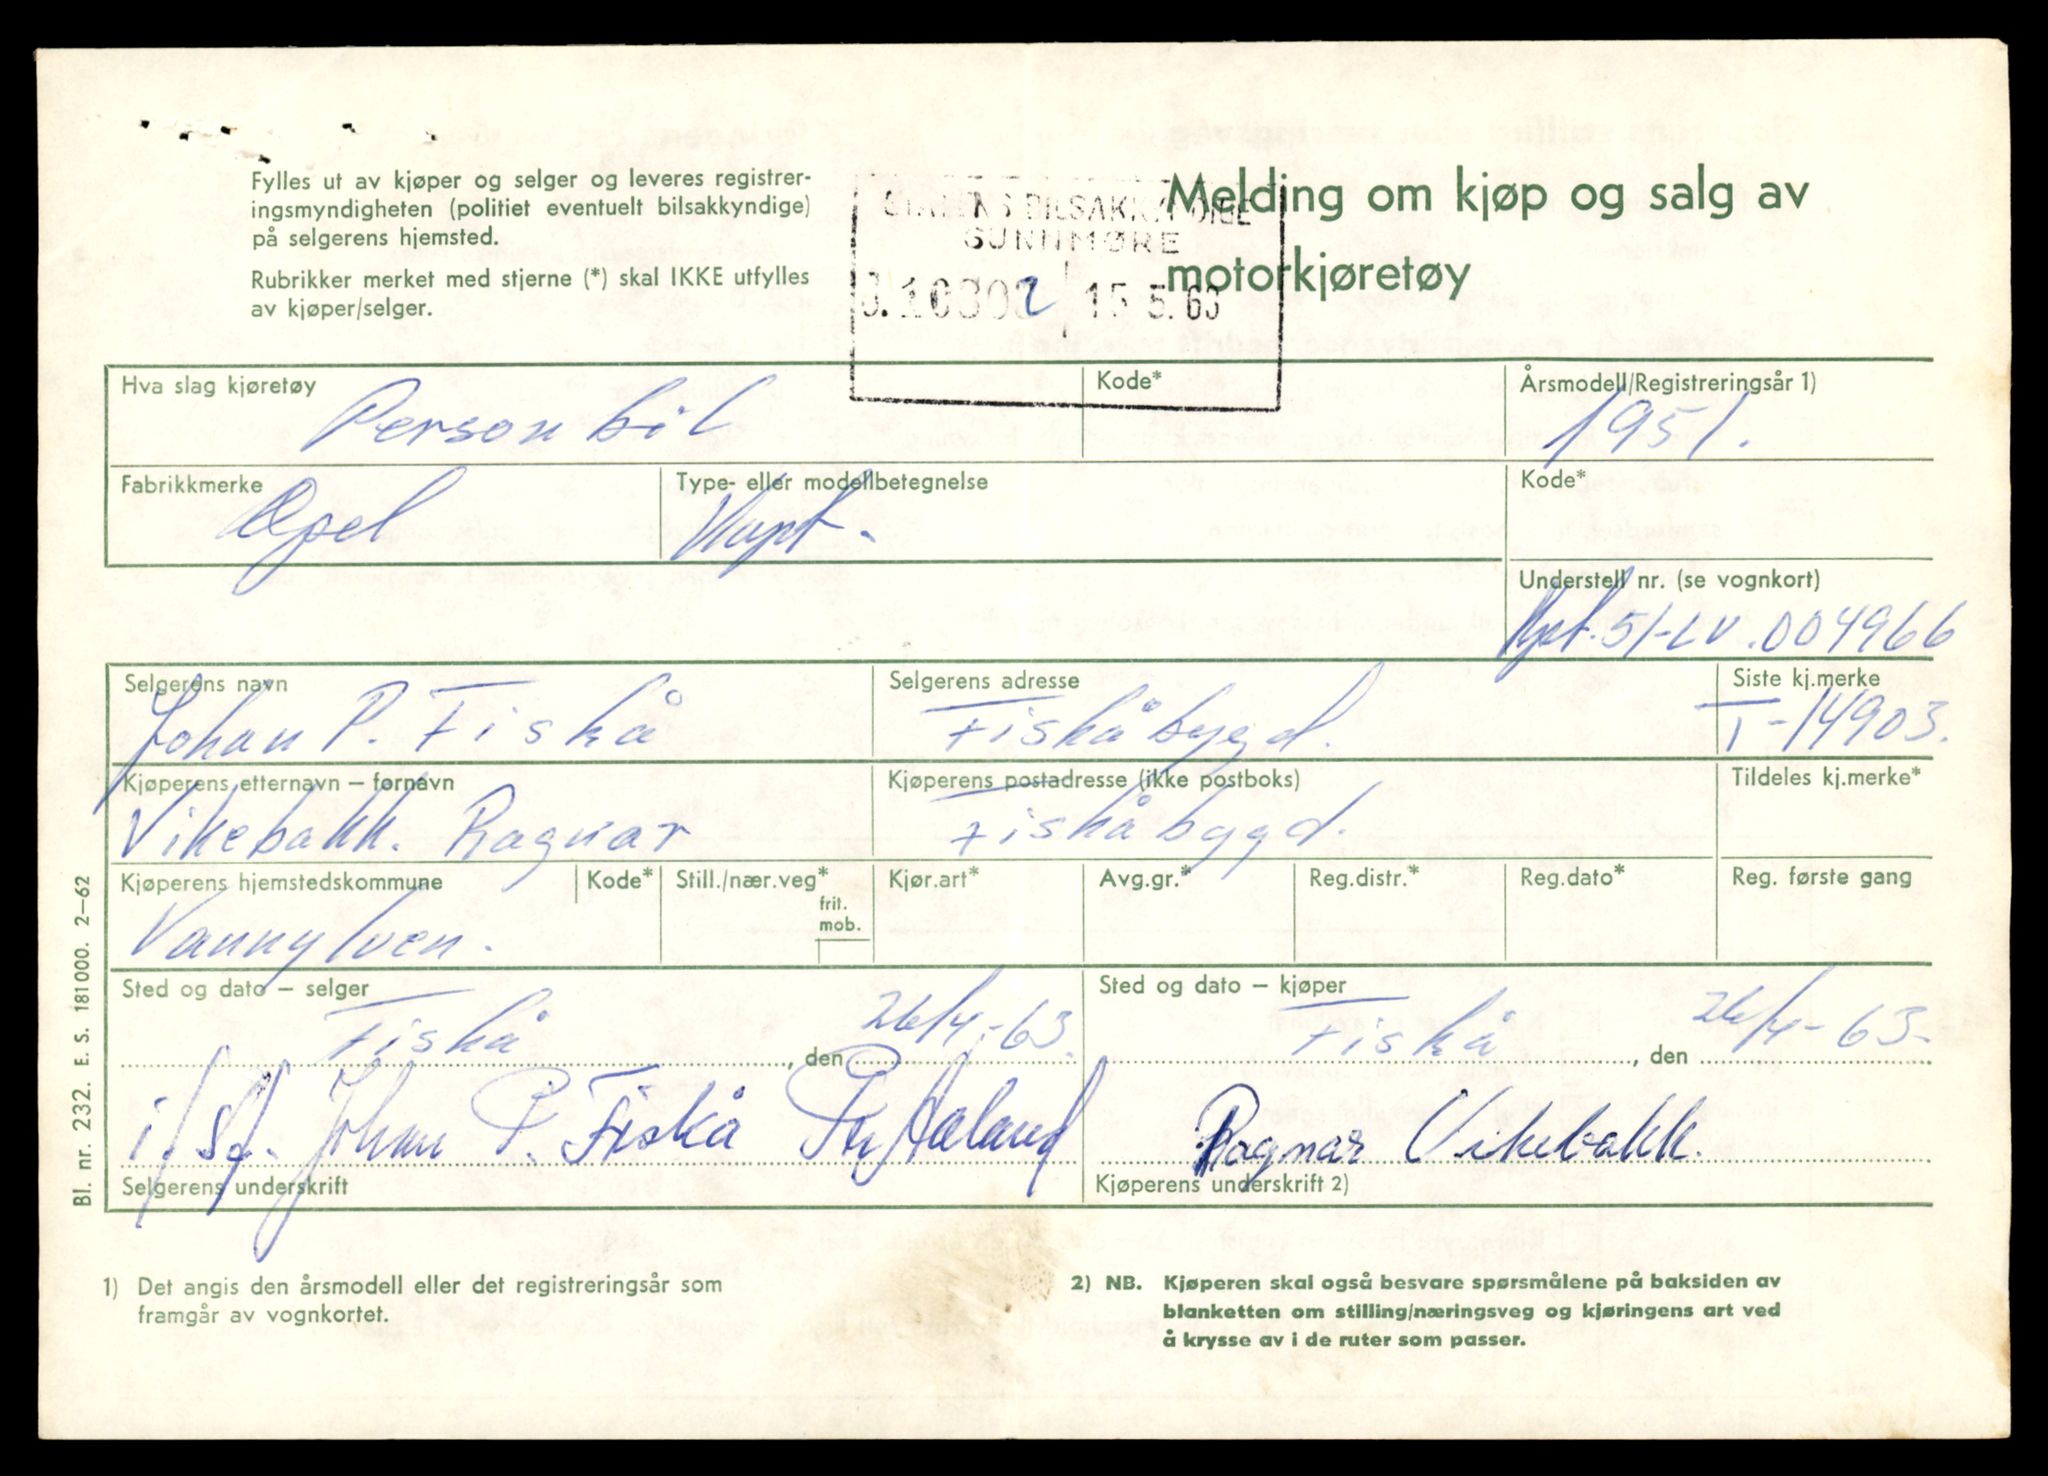 Fylles ut av kjøper og selger og leveres registrer-
ingsmyndigheten (politiet eventuelt bilsakkyndige)
på selgerens hjemsted.
Rubrikker merket med stjerne (*) skal IKKE utfylles
av kjøper/selger.
Melding om kjøp og salg av
motorkjøretøy
STATENS BILSAKKYNDIGE
SUNNMØRE
15 5. 63
Hva slag kjøretøy
Kode*
Årsmodell/Registreringsår 1)
Personbil
1951.
Fabrikkmerke
Type- eller modellbetegnelse
Kode*
Opel
Kapt.
Understell nr. (se vognkort)
Kpt.51-LV.004966
Selgerens navn
Selgerens adresse
Siste kj.merke
Johan P. Fiskå
Fiskåbygd.
T-14903.
Kjøperens etternavn – fornavn
Kjøperens postadresse (ikke postboks)
Tildeles kj.merke*
Vikebakk. Ragnar
Fiskåbygd.
Kjøperens hjemstedskommune
Kode*
Still./nær.veg*
frit.
mob.
Kjør.art*
Avg.gr.*
Reg.distr.*
Reg.dato*
Reg. første gang
Vannylven.
Sted og dato – selger
Sted og dato – kjøper
Fiskå , den 26/4-63.
Fiskå , den 26/4-63.
Johan P. Fiskå
Ragnar Vikebakk.
Selgerens underskrift
Kjøperens underskrift 2)
Bl. nr. 232. E. S. 181000. 2–62
1) Det angis den årsmodell eller det registreringsår som
framgår av vognkortet.
2) NB. Kjøperen skal også besvare spørsmålene på baksiden av
blanketten om stilling/næringsveg og kjøringens art ved
å krysse av i de ruter som passer.